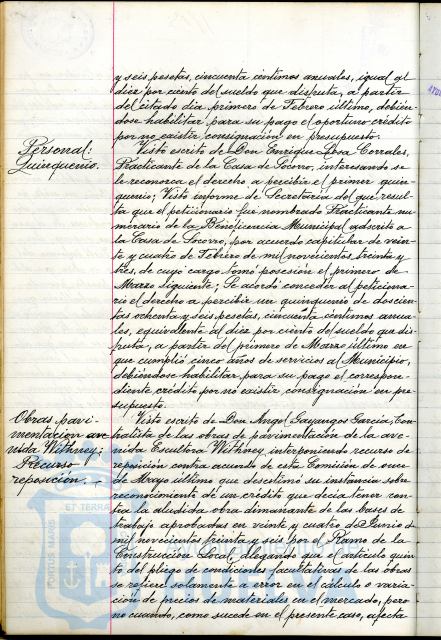 y seis pesetas, cincuenta céntimos anuales, igual al
diez por ciento del sueldo que disfruta, a partir
del citado dia primero de Febrero último, debién-
dose habilitar para su pago el oportuno crédito
por no existir consignación en presupuesto.
Personal:
Quinquenio.
Visto escrito de Don Enrique Sosa Corrales,
Practicante de la Casa de Socorro, interesando se
le reconozca el derecho a percibir el primer quin-
quenio; Visto informe de Secretaría del que resul-
ta que el peticionario fue nombrado Practicante nu-
merario de la Beneficencia Municipal adscrito a
la Casa de Socorro, por acuerdo capitular de vein-
te y cuatro de Febrero de mil novecientos treinta y
tres, de cuyo cargo tomó posesión el primero de
Marzo siguiente; Se acordó conceder al peticiona-
rio el derecho a percibir un quinquenio de doscien-
tas ochenta y seis pesetas, cincuenta céntimos anua-
les, equivalente al diez por ciento del sueldo que dis-
fruta, a partir del primero de Marzo último en
que cumplió cinco años de servicios al Municipio,
debiéndose habilitar para su pago el correspon-
diente crédito por no existir consignación en pre-
supuesto.
Obras pavi-
mentación ave
nida Withney;
Recurso
reposición.-
Visto escrito de Don Angel Gayangos Garcia, Con-
tratista de las obras de pavimentación de la ave-
nida Escultora Withney, interponiendo recurso de
reposición contra acuerdo de esta Comisión de once
de Mayo último que desestimó su instancia sobre
reconocimiento de un crédito que decía tener con-
tra la aludida obra dimanante de las bases de
trabajo aprobadas en veinte y cuatro de Junio de
mil novecientos treinta y seis por el Ramo de la
Construcción Local, alegando que el artículo quin-
to del pliego de condiciones facultativas de las obras
se refiere solamente a error en el cálculo o varia-
ción de precios de materiales en el mercado, pero
no cuando, como sucede en el presente caso, afecta
PORTUS MARIS
ET TERRA